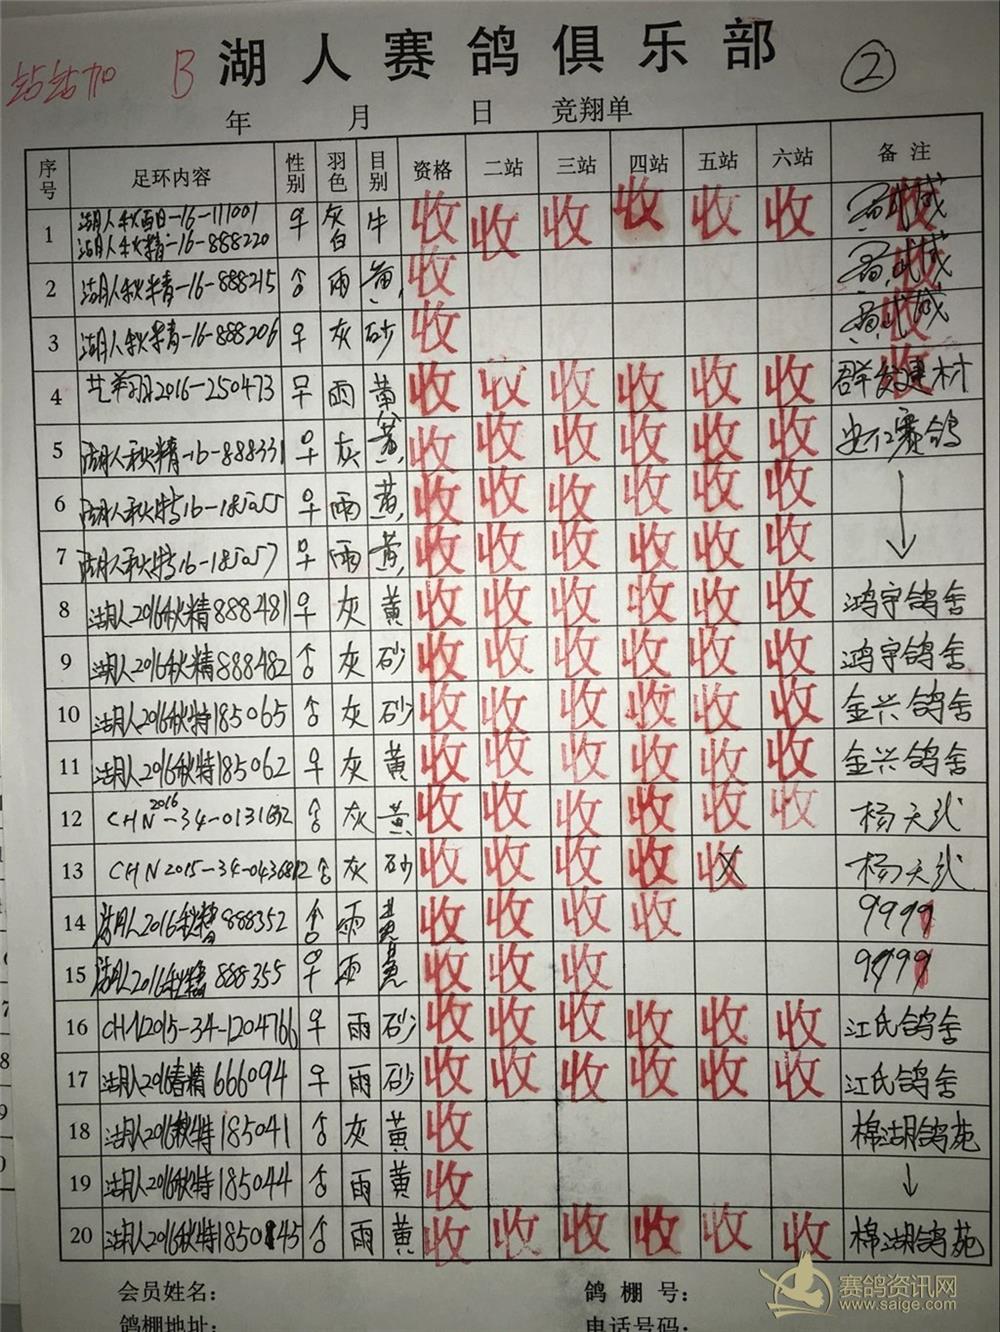 站站加 B 湖人赛鸽俱乐部 ②
年 月 日 竞翔单
序号 足环内容 性别 羽色 目别 资格 二站 三站 四站 五站 六站 备注
1 湖人秋西日-16-111001 湖人秋精-16-888220 ♀ 灰白 牛 收 收 收 收 收 收 收
2 湖人秋精-16-888215 雨 黄 收 收
3 湖人秋精-16-888206 ♀ 灰 砂 收 收
4 2016-250473 雨 黄 收 收 收 收 收 收 群发建材 收
5 湖人秋精-16-888331 灰 黄 收 收 收 收 收 收 赛鸽
6 湖人秋特16-185055 雨 黄 收 收 收 收 收 收 ↓
7 湖人秋特16-185057 雨 黄 收 收 收 收 收 收
8 湖人2016秋精888481 ♀ 灰 黄 收 收 收 收 收 收 鸿宇鸽舍
9 湖人2016秋精888482 灰 砂 收 收 收 收 收 收 鸿宇鸽舍
10 湖人2016秋特185065 灰 砂 收 收 收 收 收 收 金兴鸽舍
11 湖人2016秋特185062 ♀ 灰 黄 收 收 收 收 收 收 金兴鸽舍
12 CHN2016-34-0131632 灰 黄 收 收 收 收 收 收 杨天
13 CHN2015-34-0436812 灰 砂 收 收 收 收 收 杨天
14 湖人2016秋精888352 雨 黄 收 收 收 收 9999
15 湖人2016秋精888355 ♀ 雨 黄 收 收 收 9999
16 CHN2015-34-1204766 ♀ 雨 砂 收 收 收 收 收 收 江氏鸽舍
17 湖人2016春精666094 ♀ 雨 砂 收 收 收 收 收 收 江氏鸽舍
18 湖人2016秋特185041 灰 黄 收 棉湖鸽苑
19 湖人2016秋特185044 雨 黄 收 ↓
20 湖人2016秋特185045 雨 黄 收 收 收 收 收 收 棉湖鸽苑
会员姓名： 鸽棚号：
鸽棚地址： 电话号码：
赛鸽资讯网
www.saige.com